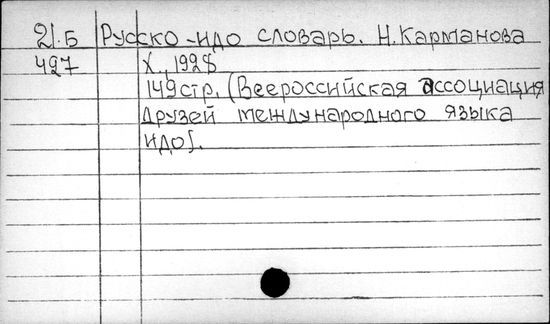 21.Б Русско-идо словарь. Н.Карманова
427 Х., 1928
149стр. (Всероссийская ассоциация
друзей международного языка
идо].